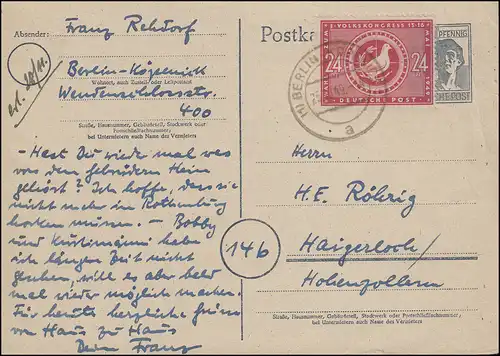 Absender: Franz Rehdorf
Berlin-Köpenick
Wohnort, auch Zustell- oder Leitpostamt
Wendenschlossstr.
400
Straße, Hausnummer, Gebäudeteil, Stockwerk oder
Postschließfachnummer;
bei Untermietern auch Name des Vermieters
- Hast Du wieder mal was
von den Gebrüdern Hein
gehört? Ich hoffe, dass sie
nicht mehr in Rothenburg
hocken müssen. - Bobby
und habe
ich längere Zeit nicht
gesehen, will es aber bald
mal wieder möglich machen.
Für heute herzliche Grüsse
von Haus zu Haus
Dein Franz
Postka
ZUM VOLKSKONGRESS
24 24
DEUTSCHE POST
PFENNIG
BERLIN
a
Herrn
H.E. Röhrig
146
Haigerloch/
Hohenzollern
Straße, Hausnummer, Gebäudeteil, Stockwerk oder Postschließfachnummer;
bei Untermietern auch Name des Vermieters